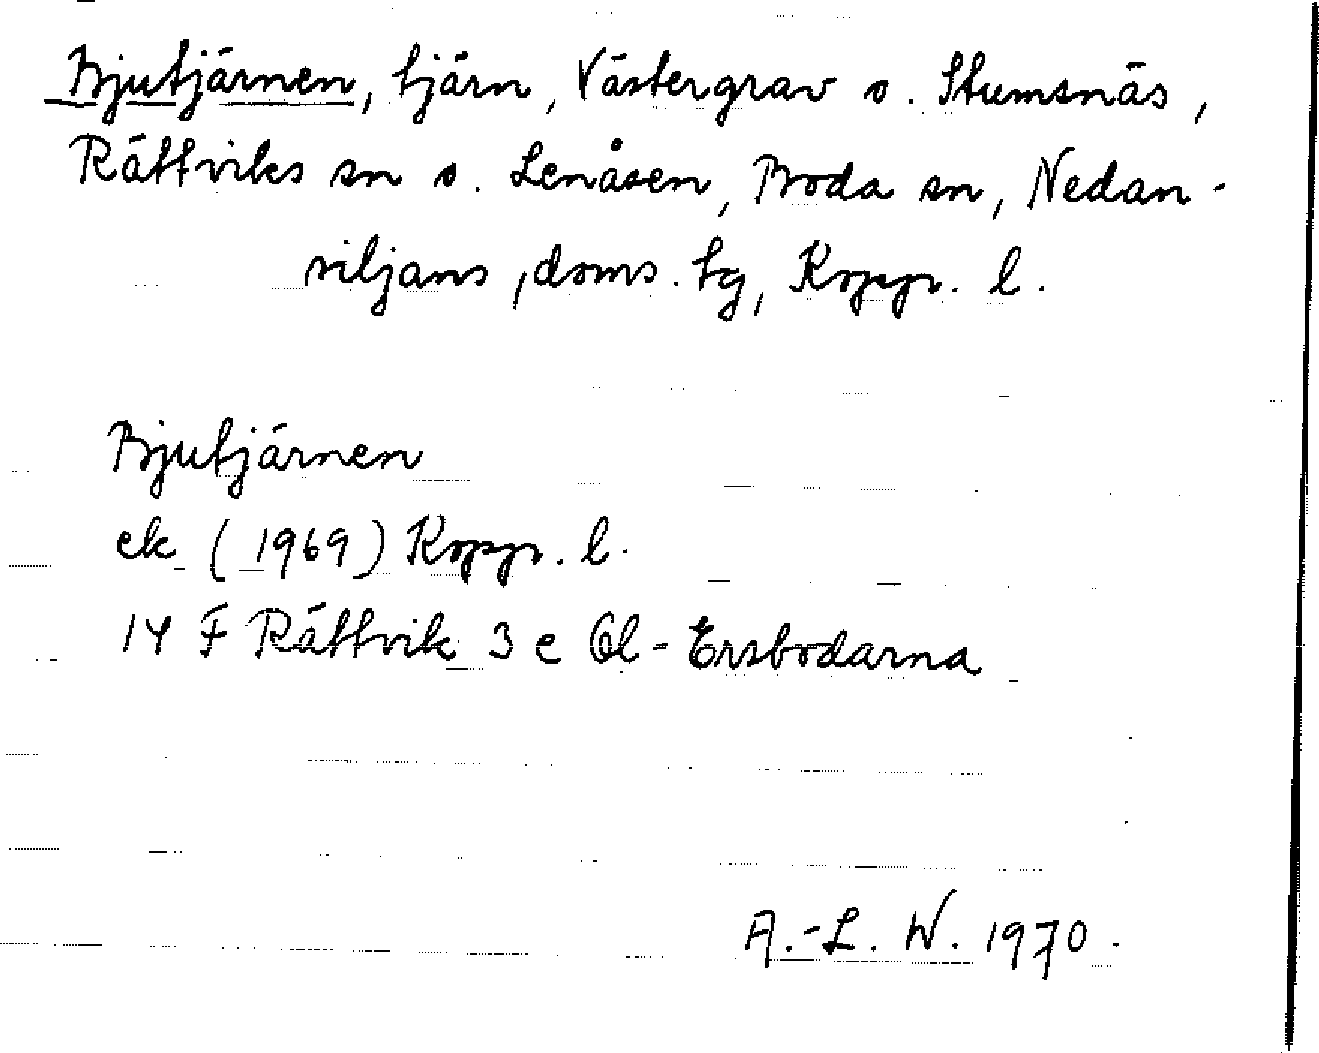 Bjutjärnen, tjärn, Västergrav o. Stumsnäs,
Rättviks sn o. Lenåsen, Boda sn, Nedan-
siljans, doms. tg, Kopp. l.
Bjutjärnen
ek (1969) Kopp. l.
14 F Rättvik 3 e Ol-Ersbodarna
A.-L. W. 1970.